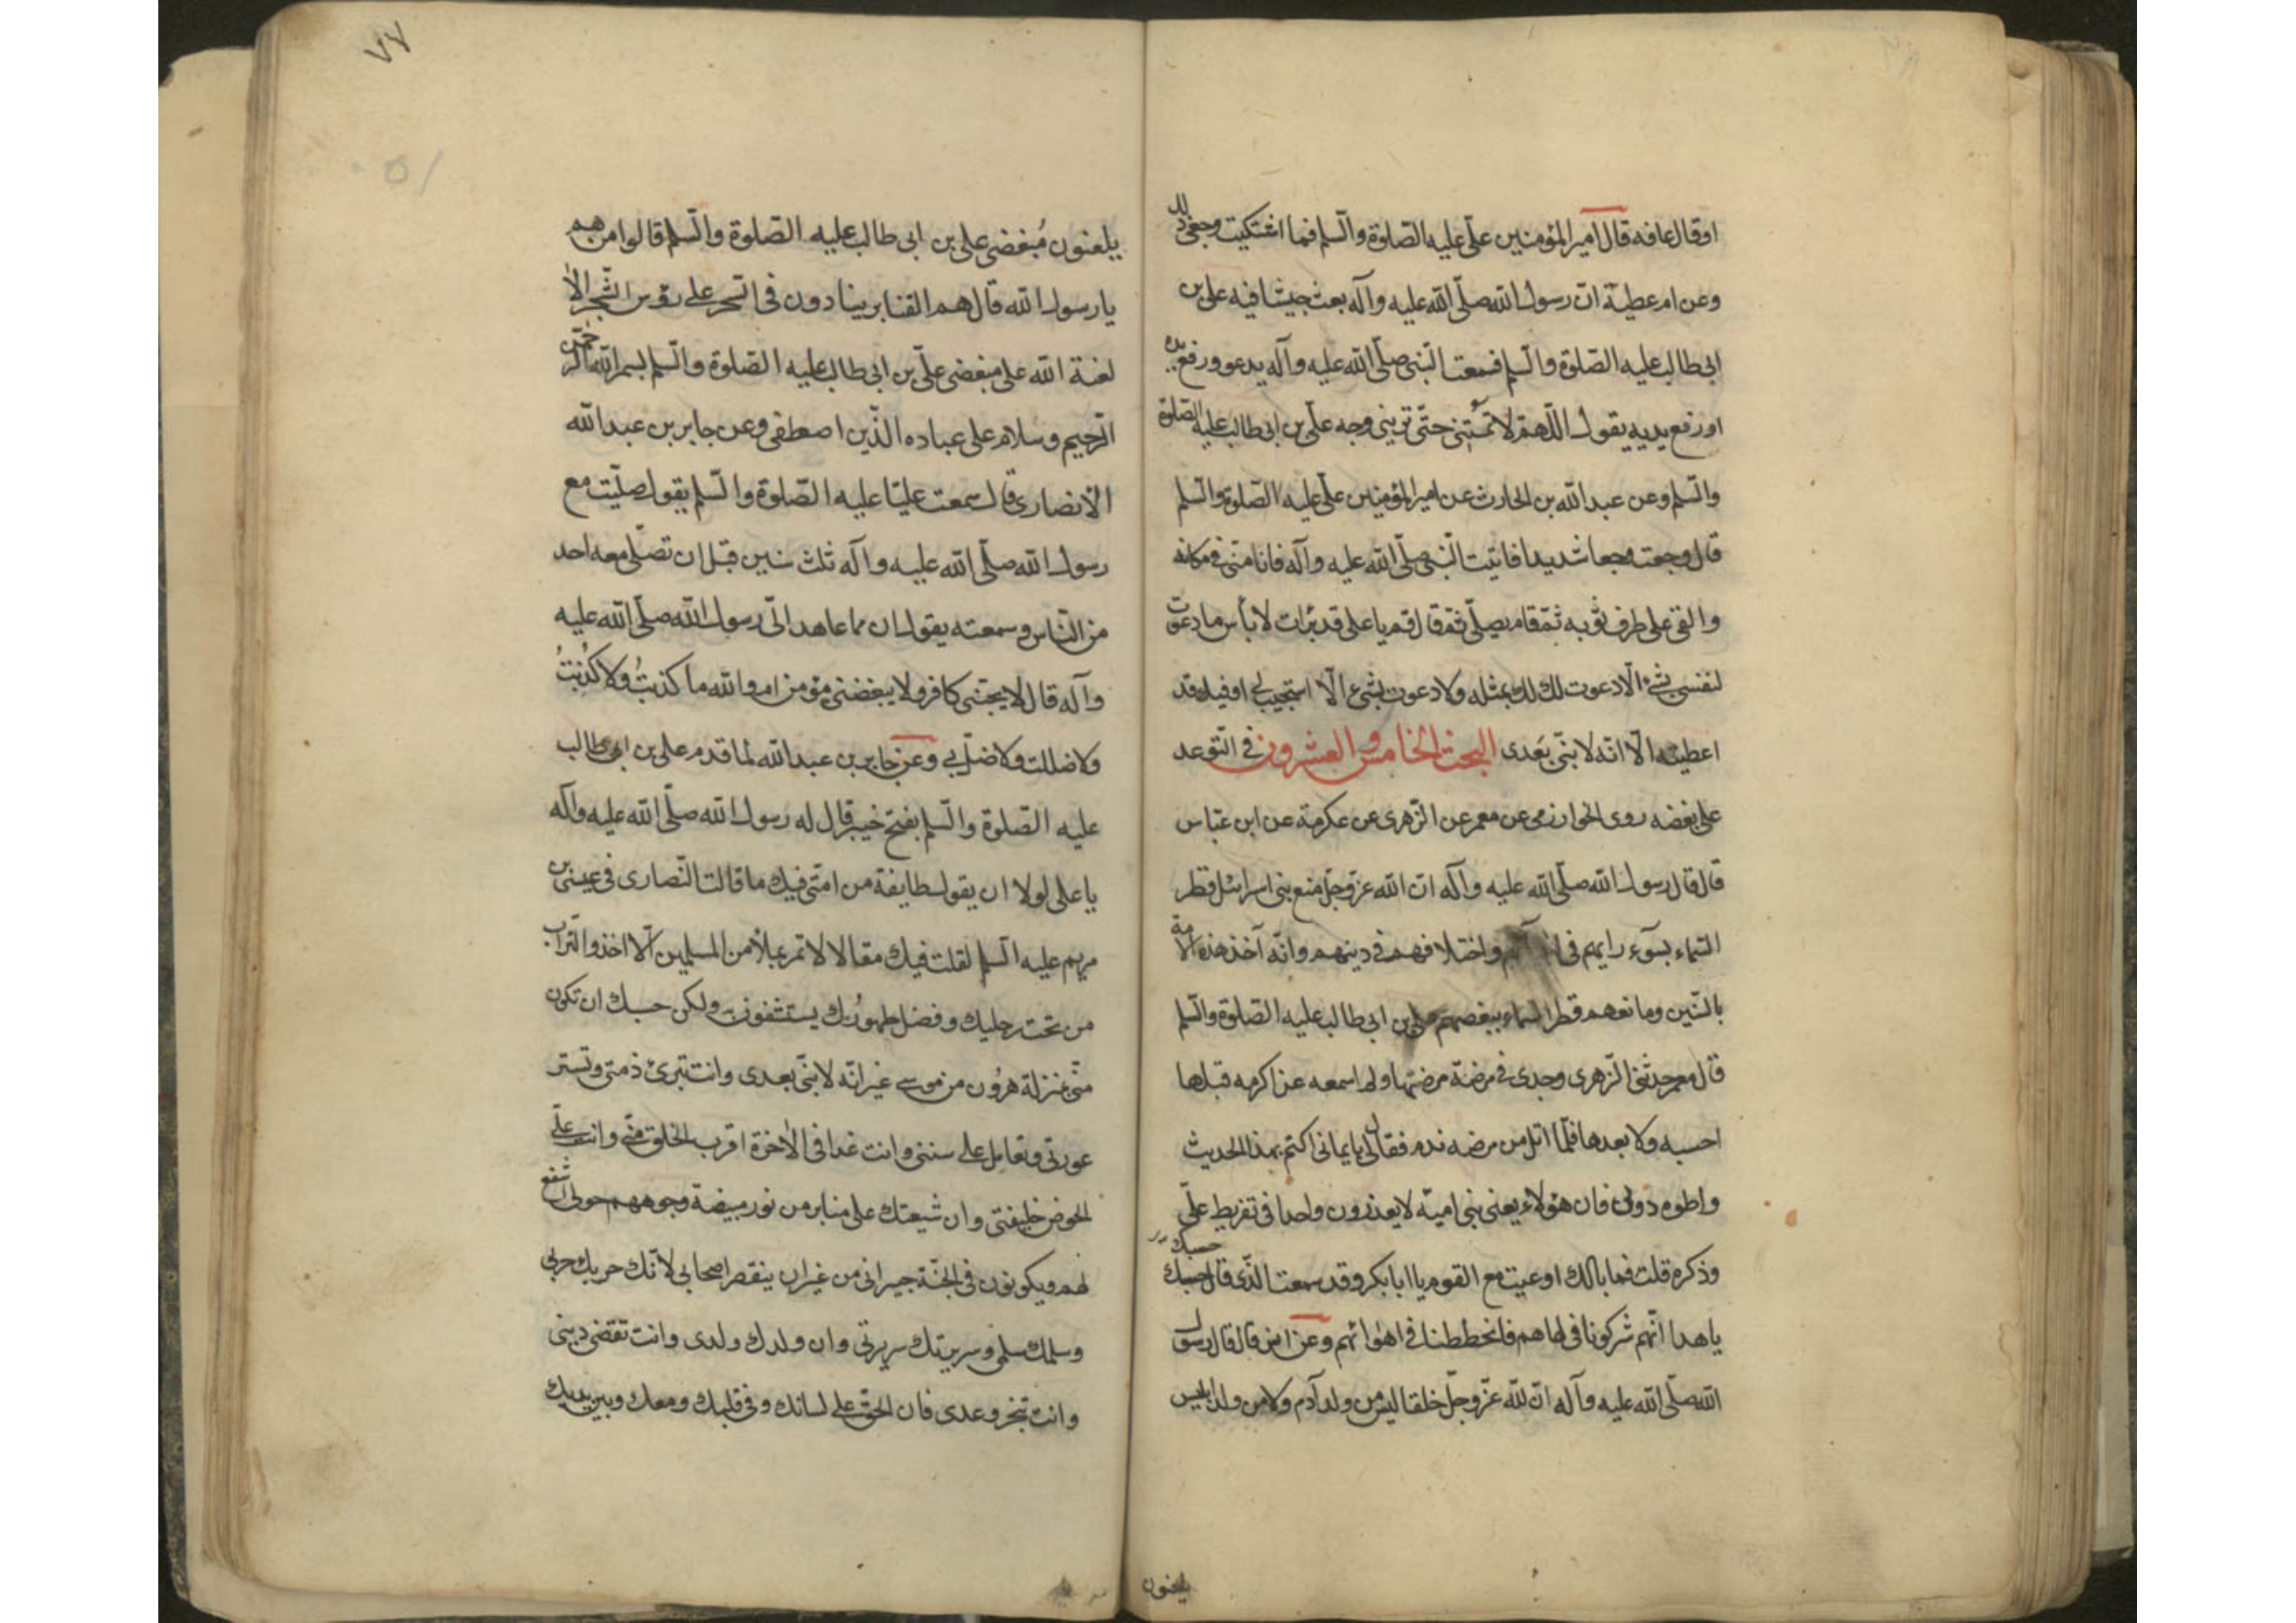 او قال عافه قال امير المؤمنين علّى عليه الصّلوة والسّلم فما اشتكيت وجعى ذلك
وعن ام عطيّة انّ رسول الله صلّى الله عليه وآله بعث جيشا فيه على بن
ابى طالب عليه الصّلوة والسّلم فسمعت النّبى صلّى الله عليه وآله يدعو ورفع يده
او رفع يديه يقول اللّهمّ لا تمتنى حتّى ترينى وجه علّى بن ابى طالب عليه الصلوة
والسّلم وعن عبد الله بن الحارث عن امير المؤمنين علّى عليه الصّلوة والسّلم
قال وجعت وجعا شديدا فاتيت النّبى صلّى الله عليه وآله فانا منّى فى مكانه
والقى على طرف ثوبه ثمّ قام يصلّى ثمّ قال قم يا على قد برأت لا بأس ما دعوت
لنفسى بشىء الّا دعوت لك بمثله ولا دعوت بشىء الّا استجيب لى او قيل قد
اعطيته الّا انّه لا نبّى بعدى البحث الخامس والعشرون فى التّوعد
على بغضه روى الخوارزمى عن معمر عن الزّهرى عن عكرمة عن ابن عبّاس
قال قال رسول الله صلّى الله عليه وآله انّ الله عزّ وجلّ منع بنى اسرائيل قطر
السّماء بسوء رايهم فى واختلافهم فى دينهم وانّه آخذ هذه الامة
بالسّنين ومانعهم قطر السماء ببغضهم على بن ابى طالب عليه الصّلوة والسّلم
قال معمر حدثنى الزّهرى وحدى فى مرضة مرضتها ولم اسمعه عن اكرمه قبلها
احسبه ولا بعدها فلّما ابّل من مرضه ندم فقال لى يا يمانى اكتم هذا الحديث
واطوه دونى فان هؤلاء يعنى بنى اميّه لا يعذرون واحدا فى تقريظ علّى
وذكره قلت فما بالك اوعيت مع القوم يا ابا بكر وقد سمعت الذّى قال حسبك
يا هدا انّهم شركونا فى لهاهم فانحططنا فى اهوائهم وعن انس قال قال رسول
الله صلّى الله عليه وآله انّ لله عزّ وجلّ خلقا ليس من ولد آدم ولا من ولد ابليس
يلعنون
٧٧
يلعنون مُبغضى على بن ابى طالب عليه الصّلوة والسّلم قالوا من هم
يا رسول الله قال هم القنابر ينادون فى السّحر على رؤس الشّجر الا
لعنة الله على مبغضى علّى بن ابى طالب عليه الصّلوة والسّلم بسم الله الرّحمن
الرّحيم وسلام على عباده الذّين اصطفى وعن جابر بن عبد الله
الانصارى قال سمعت عليّا عليه الصّلوة والسّلم يقول صلّيت مع
رسول الله صلّى الله عليه وآله ثلث سنين قبل ان تصلّى معه احد
من النّاس وسمعته يقول ان مما عاهد الّى رسول الله صلّى الله عليه
وآله قال لا يحبّنى كافر ولا يبغضنى مؤمن ام والله ما كذبتُ ولا كُذبتُ
ولا ضللت ولا ضلّ بى وعن جابر بن عبد الله لما قدم على بن ابى طالب
عليه الصّلوة والسّلم بفتح خيبر قال له رسول الله صلّى الله عليه وآله
يا على لولا ان يقول طايفة من امتى فيك ما قالت النّصارى فى عيسى بن
مريم عليه السّلم لقلت فيك مقالا لا تمر بملأ من المسلمين الّا اخذوا التراب
من تحت رجليك وفضل طهورك يستشفون به ولكن حسبك ان تكون
منّى بمنزلة هرون من موسى غير انّه لا نبّى بعدى وانت تبرئ ذمتى وتستر
عورتى وتقاتل على سنتى وانت غدا فى الاخرة اقرب الخلق منّى وانت على
الحوض خليفتى وان شيعتك على منابر من نور مبيضة وجوههم حولى اشفع
لهم ويكونون فى الجنّة جيرانى من غير ان ينقص اصحابى لانّك حربك حربى
وسلمك سلمى وسريرتك سريرتى وان ولدك ولدى وانت تقضى دينى
وانت تنجز وعدى فان الحق على لسانك وفى قلبك ومعك وبين يديك